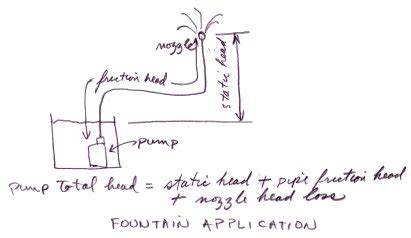 nozzle
static head
friction head
pump
pump Total head = static head + pipe friction head
+ nozzle head loss
FOUNTAIN APPLICATION